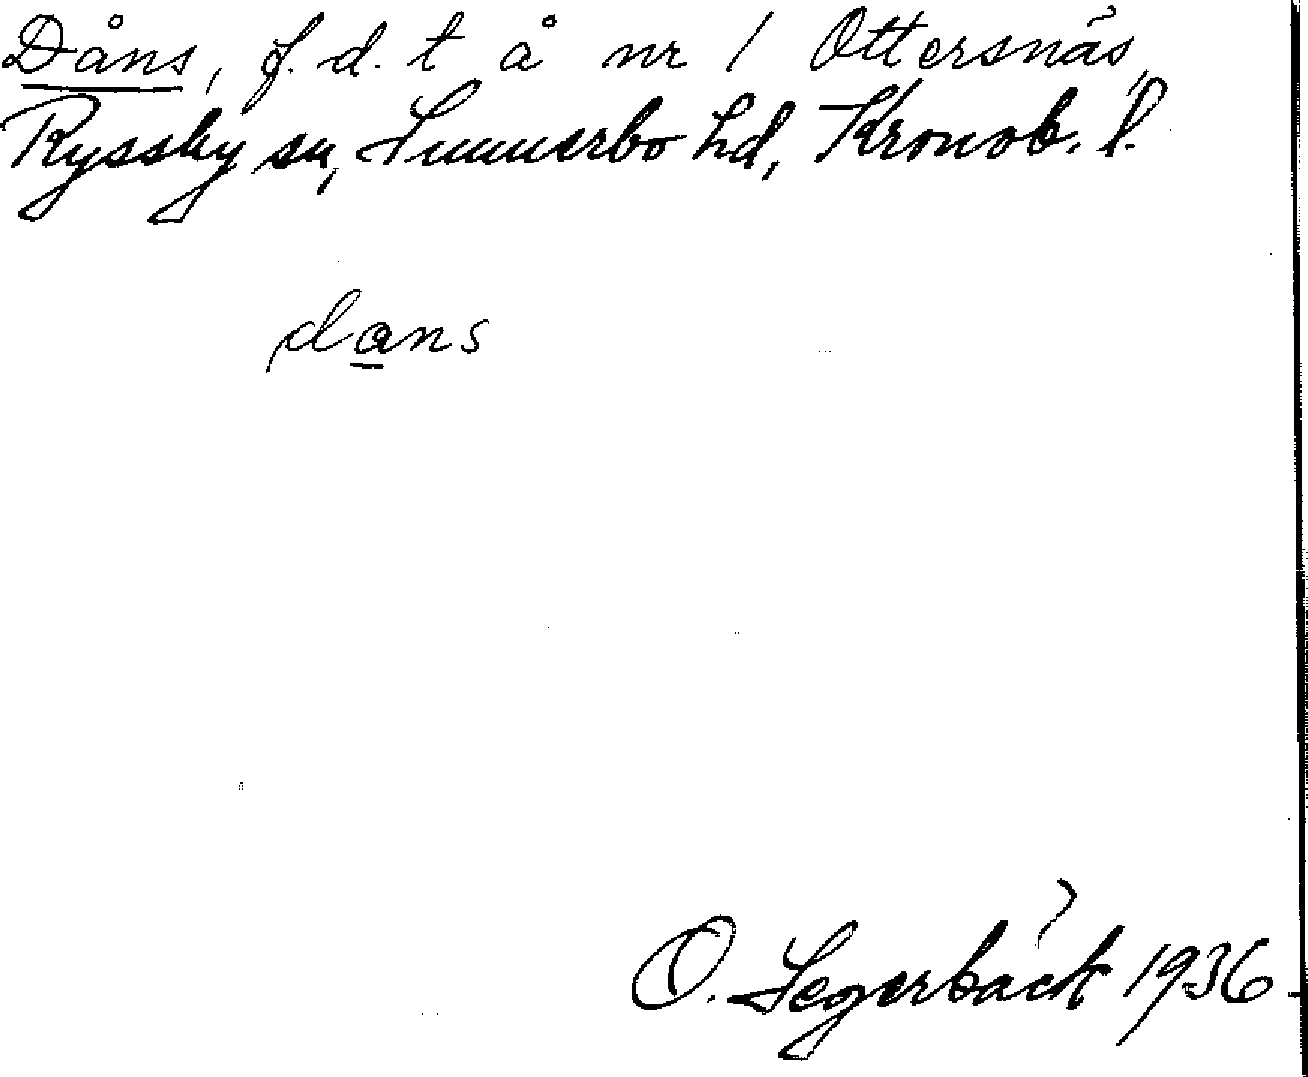 Dåns, f. d. t å nr 1 Ottersnäs,
Ryssby sn, Sunnerbo hd, Kronob. l.
dans
O. Segerbäck 1936